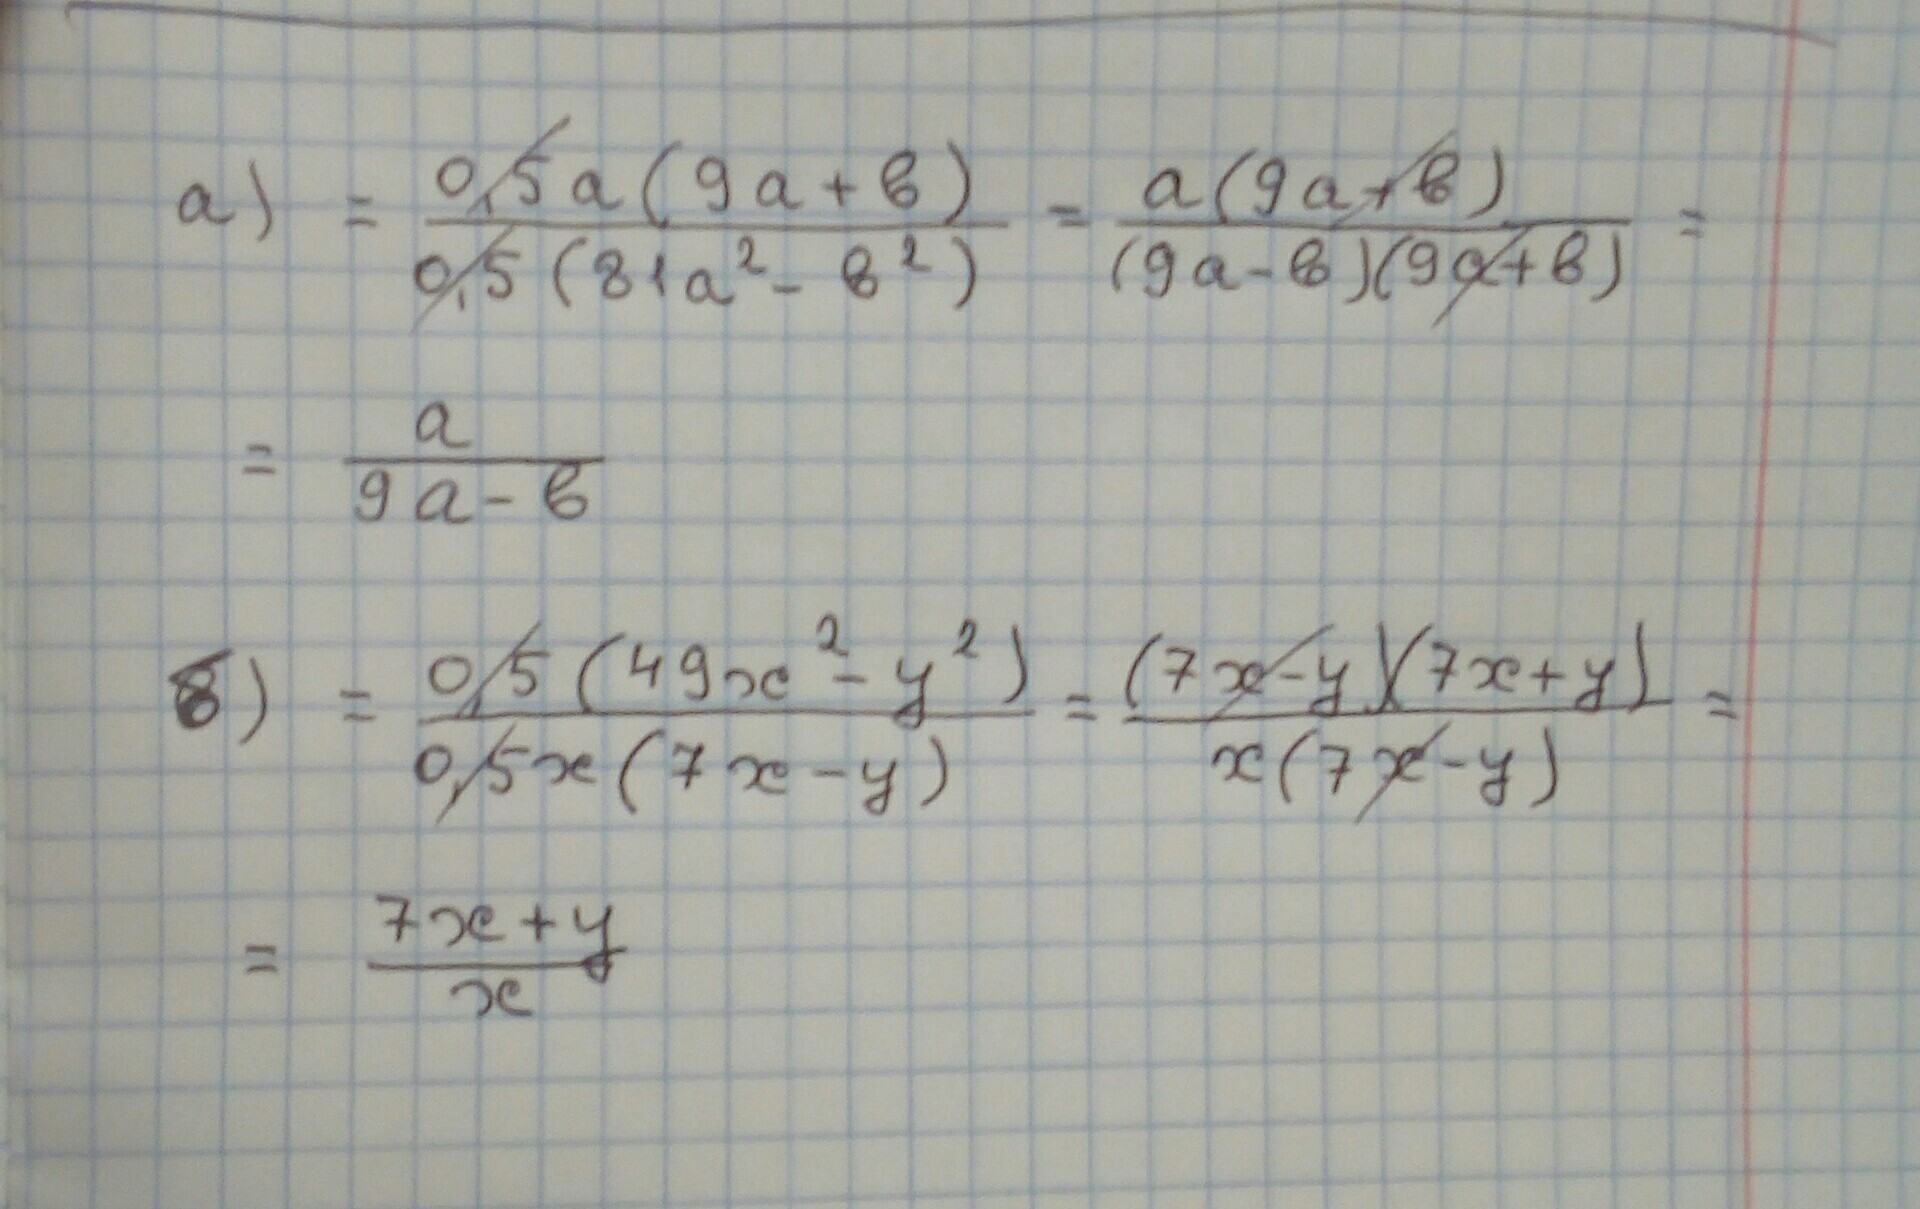 а) = \frac{0,5a(9a+в)}{0,5(81a²-в²)} = \frac{a(9a+в)}{(9a-в)(9a+в)} =
= \frac{a}{9a-в}
б) = \frac{0,5(49x²-y²)}{0,5x(7x-y)} = \frac{(7x-y)(7x+y)}{x(7x-y)} =
= \frac{7x+y}{x}